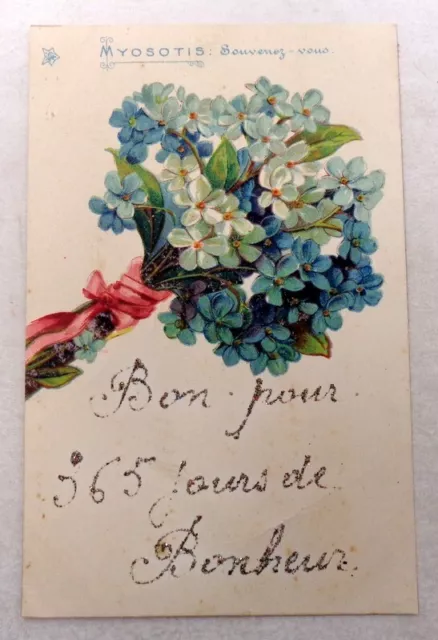 MYOSOTIS: Souvenez-vous.
Bon pour
365 jours de
Bonheur.